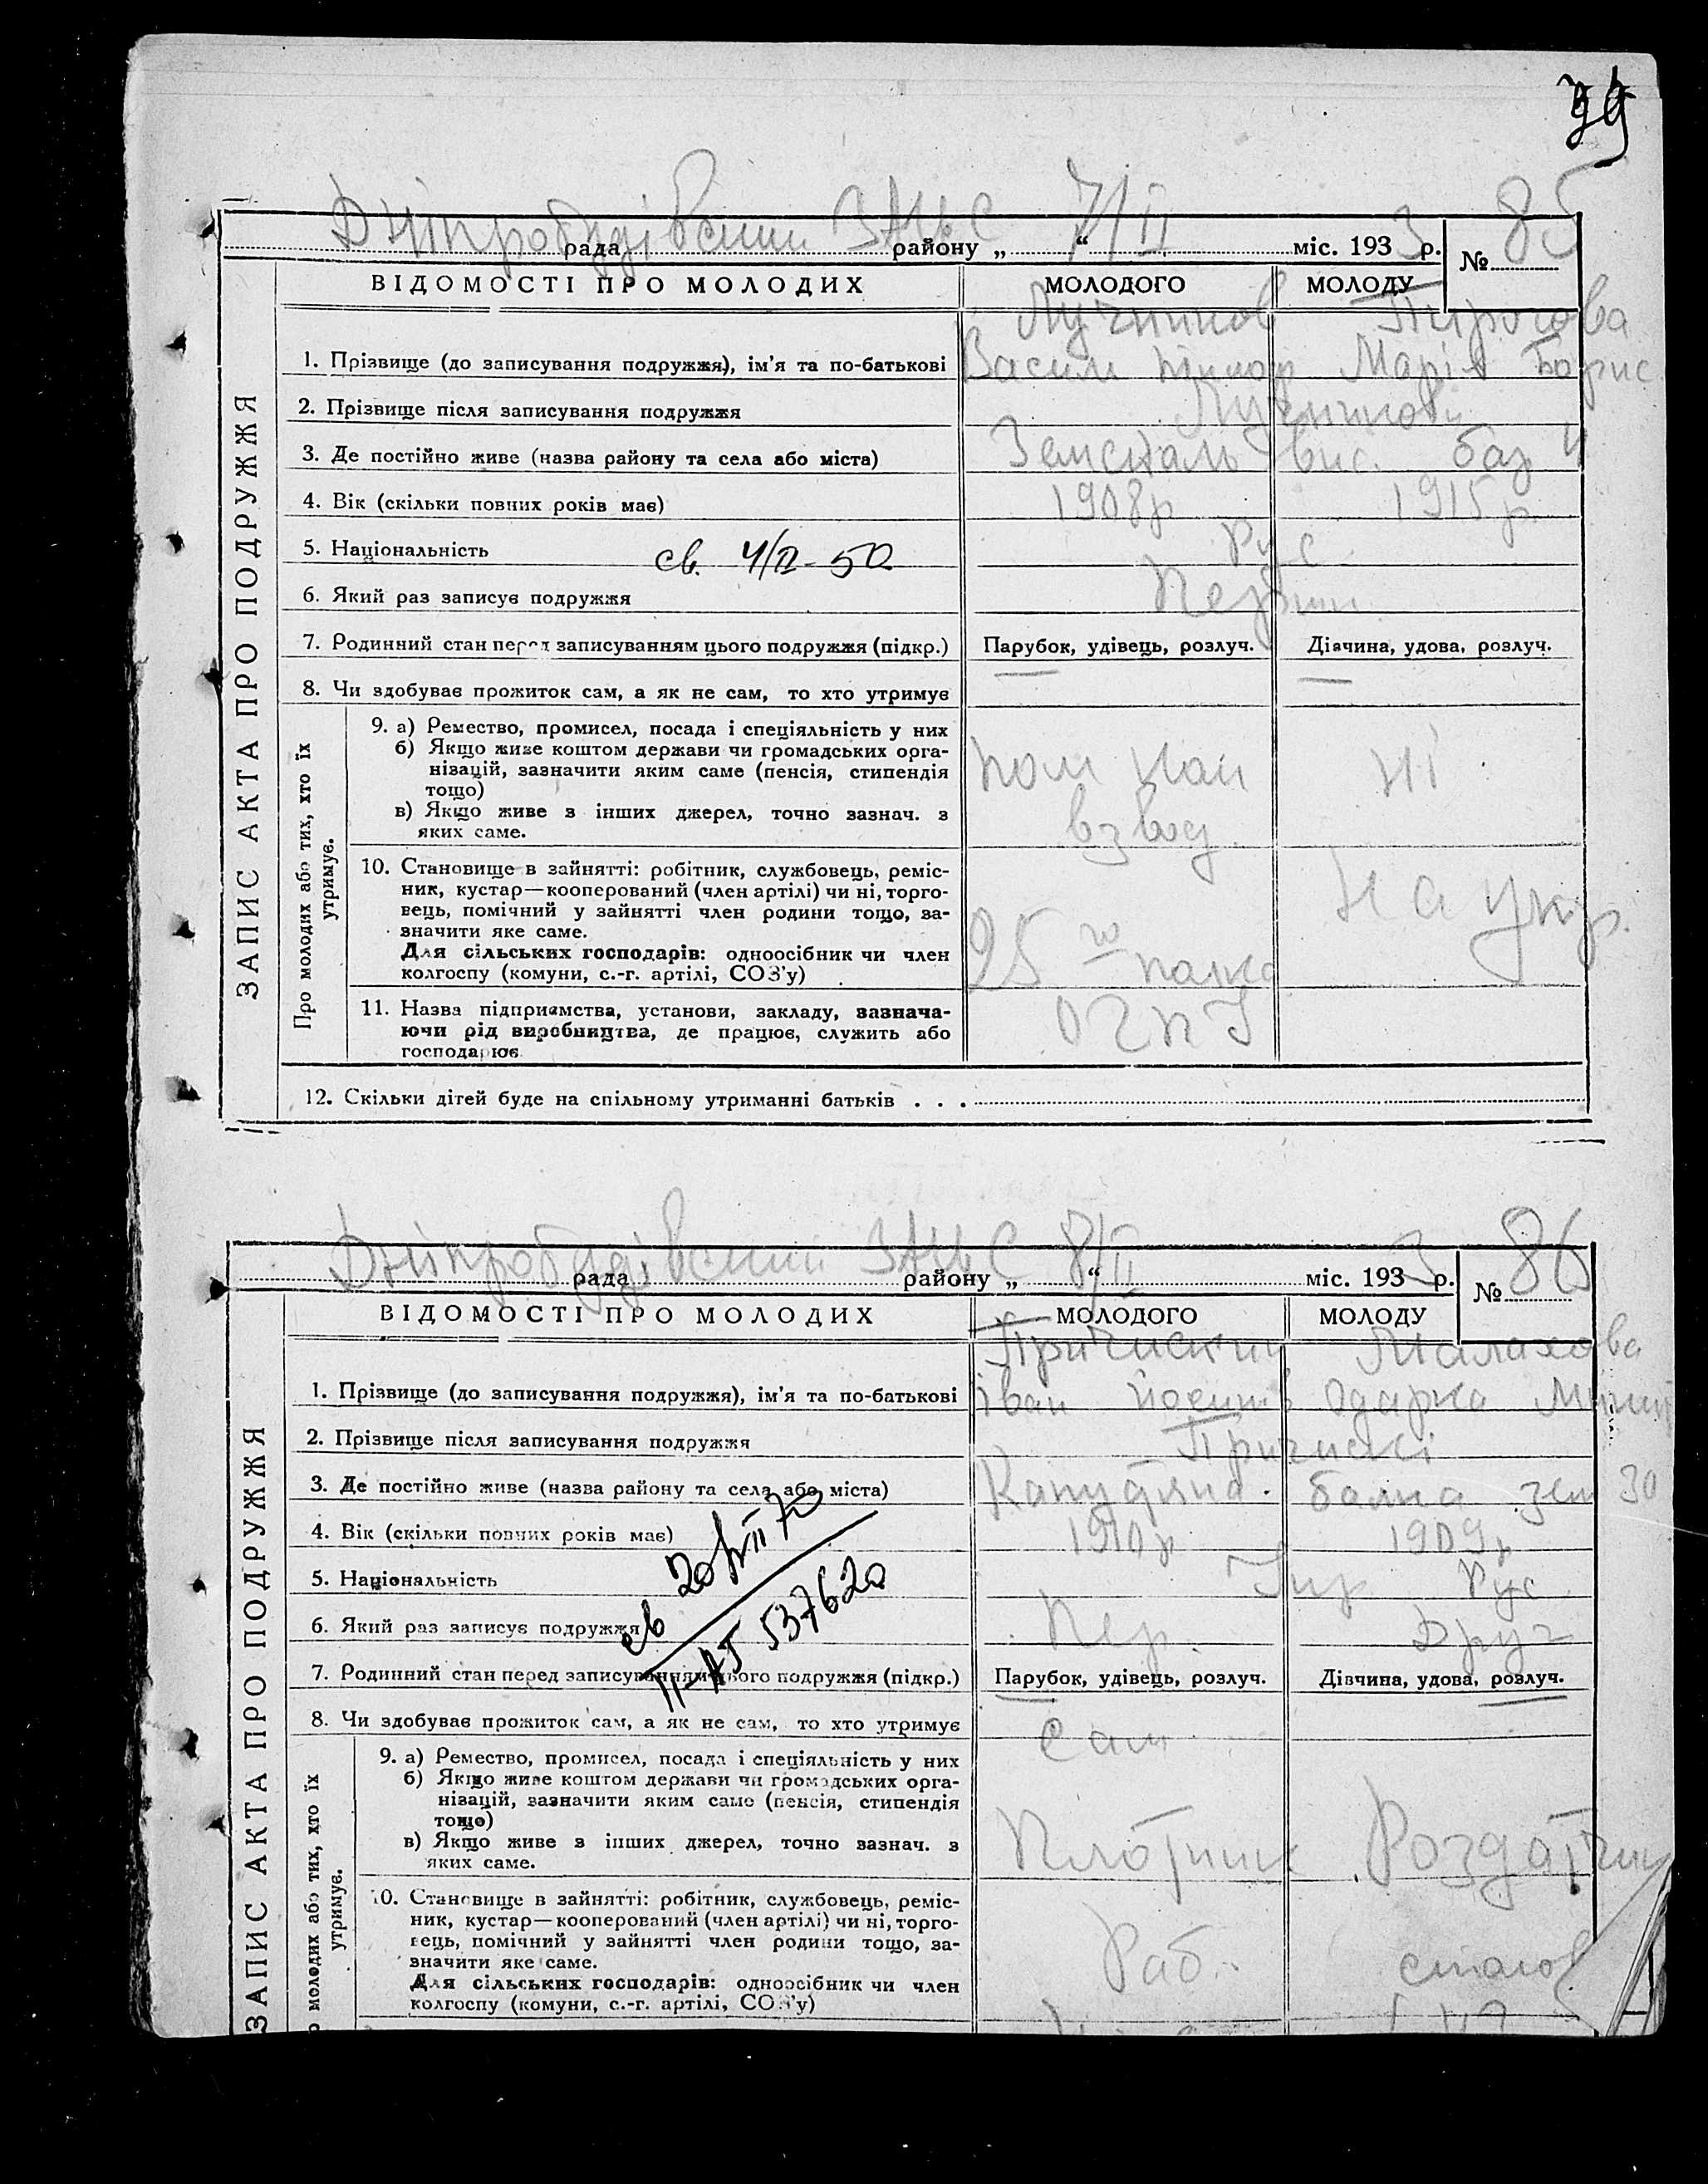 39
Дніпробудівський ЗАГС 7/II
рада району „ “ міс. 1933 р. № 85
ВІДОМОСТІ ПРО МОЛОДИХ МОЛОДОГО МОЛОДУ
Лучников Пирогова
1. Прізвище (до записування подружжя), ім'я та по-батькові Васил Марія Борис
2. Прізвище після записування подружжя
3. Де постійно живе (назва району та села або міста) вис. 4
4. Вік (скільки повних років має) 1908р 1915р
5. Національність св. 4/II-50 Рус
6. Який раз записує подружжя Первий
7. Родинний стан перед записуванням цього подружжя (підкр.) Парубок, удівець, розлуч. Дівчина, удова, розлуч.
8. Чи здобуває прожиток сам, а як не сам, то хто утримує
ЗАПИС АКТА ПРО ПОДРУЖЖЯ
Про молодих або тих, хто їх утримує.
9. а) Ремество, промисел, посада і спеціяльність у них
б) Якщо живе коштом держави чи громадських орга-
нізацій, зазначити яким саме (пенсія, стипендія
тощо)
в) Якщо живе з інших джерел, точно зазнач. з
яких саме.
пом ком ні
взвод
10. Становище в зайнятті: робітник, службовець, реміс-
ник, кустар—кооперований (член артілі) чи ні, торго-
вець, помічний у зайнятті член родини тощо, за-
значити яке саме.
Для сільських господарів: одноосібник чи член
колгоспу (комуни, с.-г. артілі, СОЗ'у)
25 го полка
на
11. Назва підприємства, установи, закладу, зазнача-
ючи рід виробництва, де працює, служить або
господарює
12. Скільки дітей буде на спільному утриманні батьків . . .
Дніпробудівський ЗАГС 8/II
рада району „ “ міс. 1933 р. № 86
ВІДОМОСТІ ПРО МОЛОДИХ МОЛОДОГО МОЛОДУ
Малахова
1. Прізвище (до записування подружжя), ім'я та по-батькові Іван Одарка
2. Прізвище після записування подружжя
3. Де постійно живе (назва району та села або міста) балка зем 30
4. Вік (скільки повних років має) 1910р 1909р
5. Національність Укр Рус
6. Який раз записує подружжя Пер. Друг
св 20/VII 70
II-АЯ 537620
7. Родинний стан перед записуванням цього подружжя (підкр.) Парубок, удівець, розлуч. Дівчина, удова, розлуч.
8. Чи здобуває прожиток сам, а як не сам, то хто утримує Сам
ЗАПИС АКТА ПРО ПОДРУЖЖЯ
молодих або тих, хто їх утримує.
9. а) Ремество, промисел, посада і спеціяльність у них
б) Якщо живе коштом держави чи громадських орга-
нізацій, зазначити яким саме (пенсія, стипендія
тощо)
в) Якщо живе з інших джерел, точно зазнач. з
яких саме.
Плотник Роздатчик
10. Становище в зайнятті: робітник, службовець, реміс-
ник, кустар—кооперований (член артілі) чи ні, торго-
вець, помічний у зайнятті член родини тощо, за-
значити яке саме.
Для сільських господарів: одноосібник чи член
колгоспу (комуни, с.-г. артілі, СОЗ'у)
Раб. столов